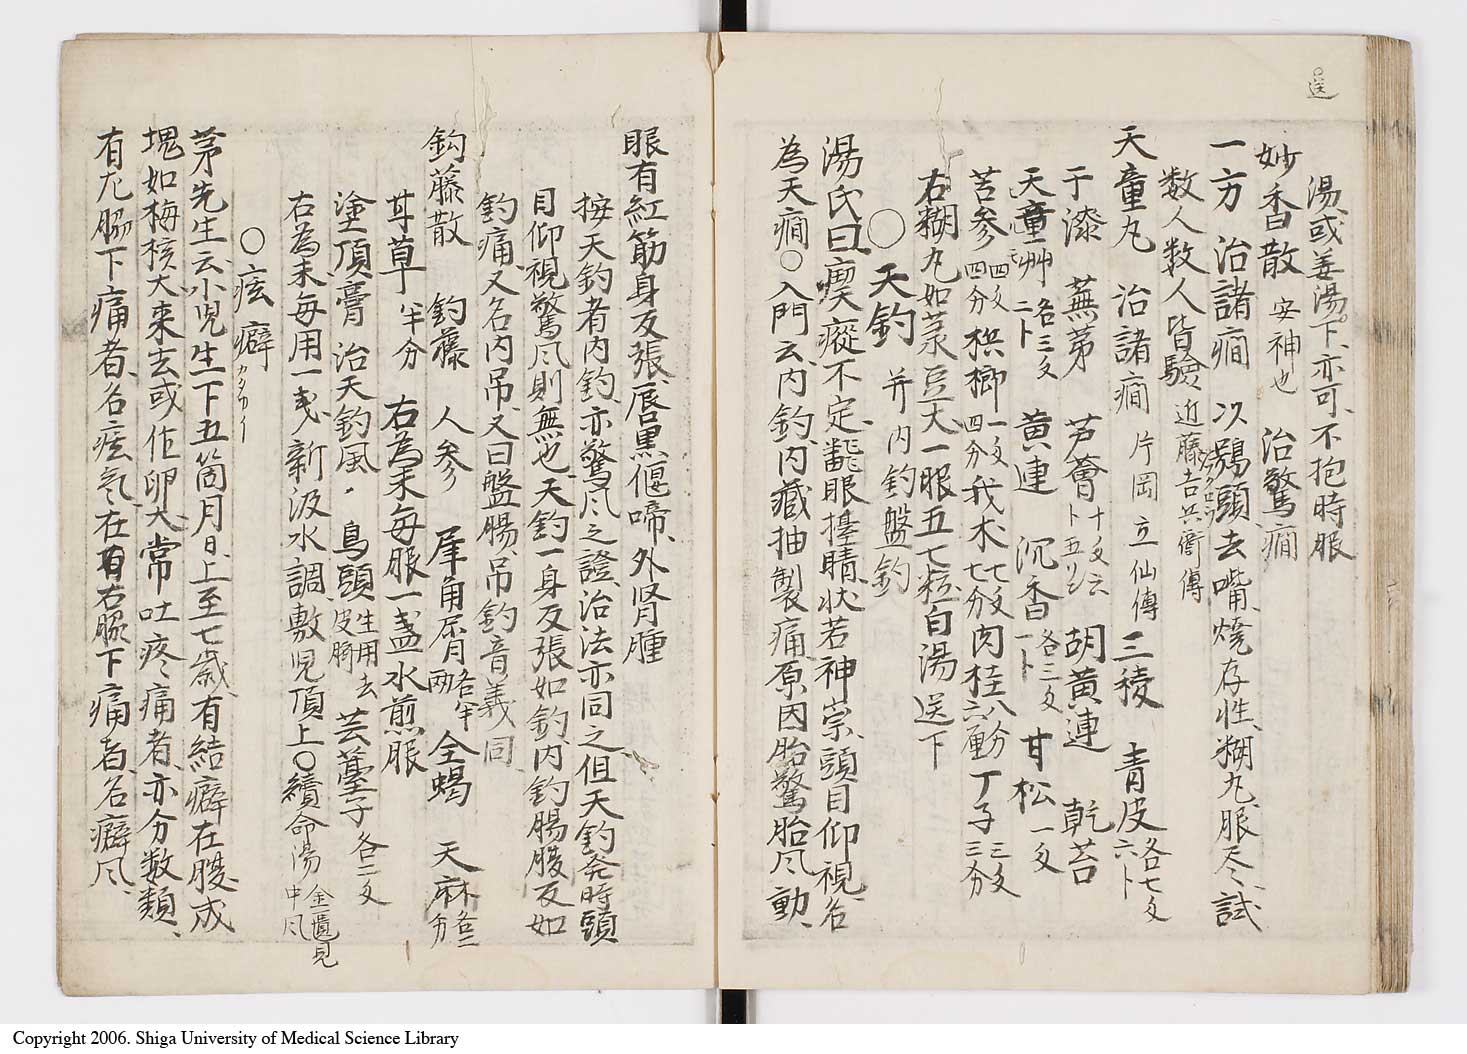 湯或姜湯下亦可不抱時服
妙香散 安神也 治驚癇
一方 治諸癇 以鵶頭去嘴燒存性糊丸服尽試
数人数人皆驗 近藤吉兵衛傳
天童丸 治諸癇 片岡立仙傳 三稜 青皮 各七匁六卜
干漆 蕪荑 芦薈 胡黄連 乾苔
天童 各三匁二卜 黄連 沉香 各三匁一卜 甘松 一匁
苦参 四匁四分 梹榔 一匁四分 我木 七匁七分 肉桂 八分六厘 丁子 三匁三分
右糊丸如菉豆大一服五七粒白湯送下
〇天釣 并内釣盤釣
湯氏曰瘈瘲不定飜眼搐睛状若神崇頭目仰視名
為天癇〇入門云内釣内臓抽製痛原因胎驚胎风動
眼有紅筋身反張唇黒傴啼外肾腫
按天釣者内釣亦驚风之證治法亦同之但天釣発時頭
目仰視驚风則無也天釣一身反張如釣内釣腸腹反如
釣痛又名内吊又曰盤腸吊釣音義同
鈎藤散 釣藤 人参 犀角屑 各半两 全蝎 天麻 各二分
甘草 半分 右為末每服一盞水煎服
塗頂膏 治天釣風 烏頭 生用去皮臍 芸薹子 各二匁
右為末每用一戋新汲水調敷児頂上〇續命湯 金匱見中风
〇痃癖
茅先生云小児生下五箇月日上至七歳有结癖在腹成
塊如梅核大来去或作卵大常吐疼痛者亦分数類
有左脇下痛者名痃气在右脇下痛者名癖风